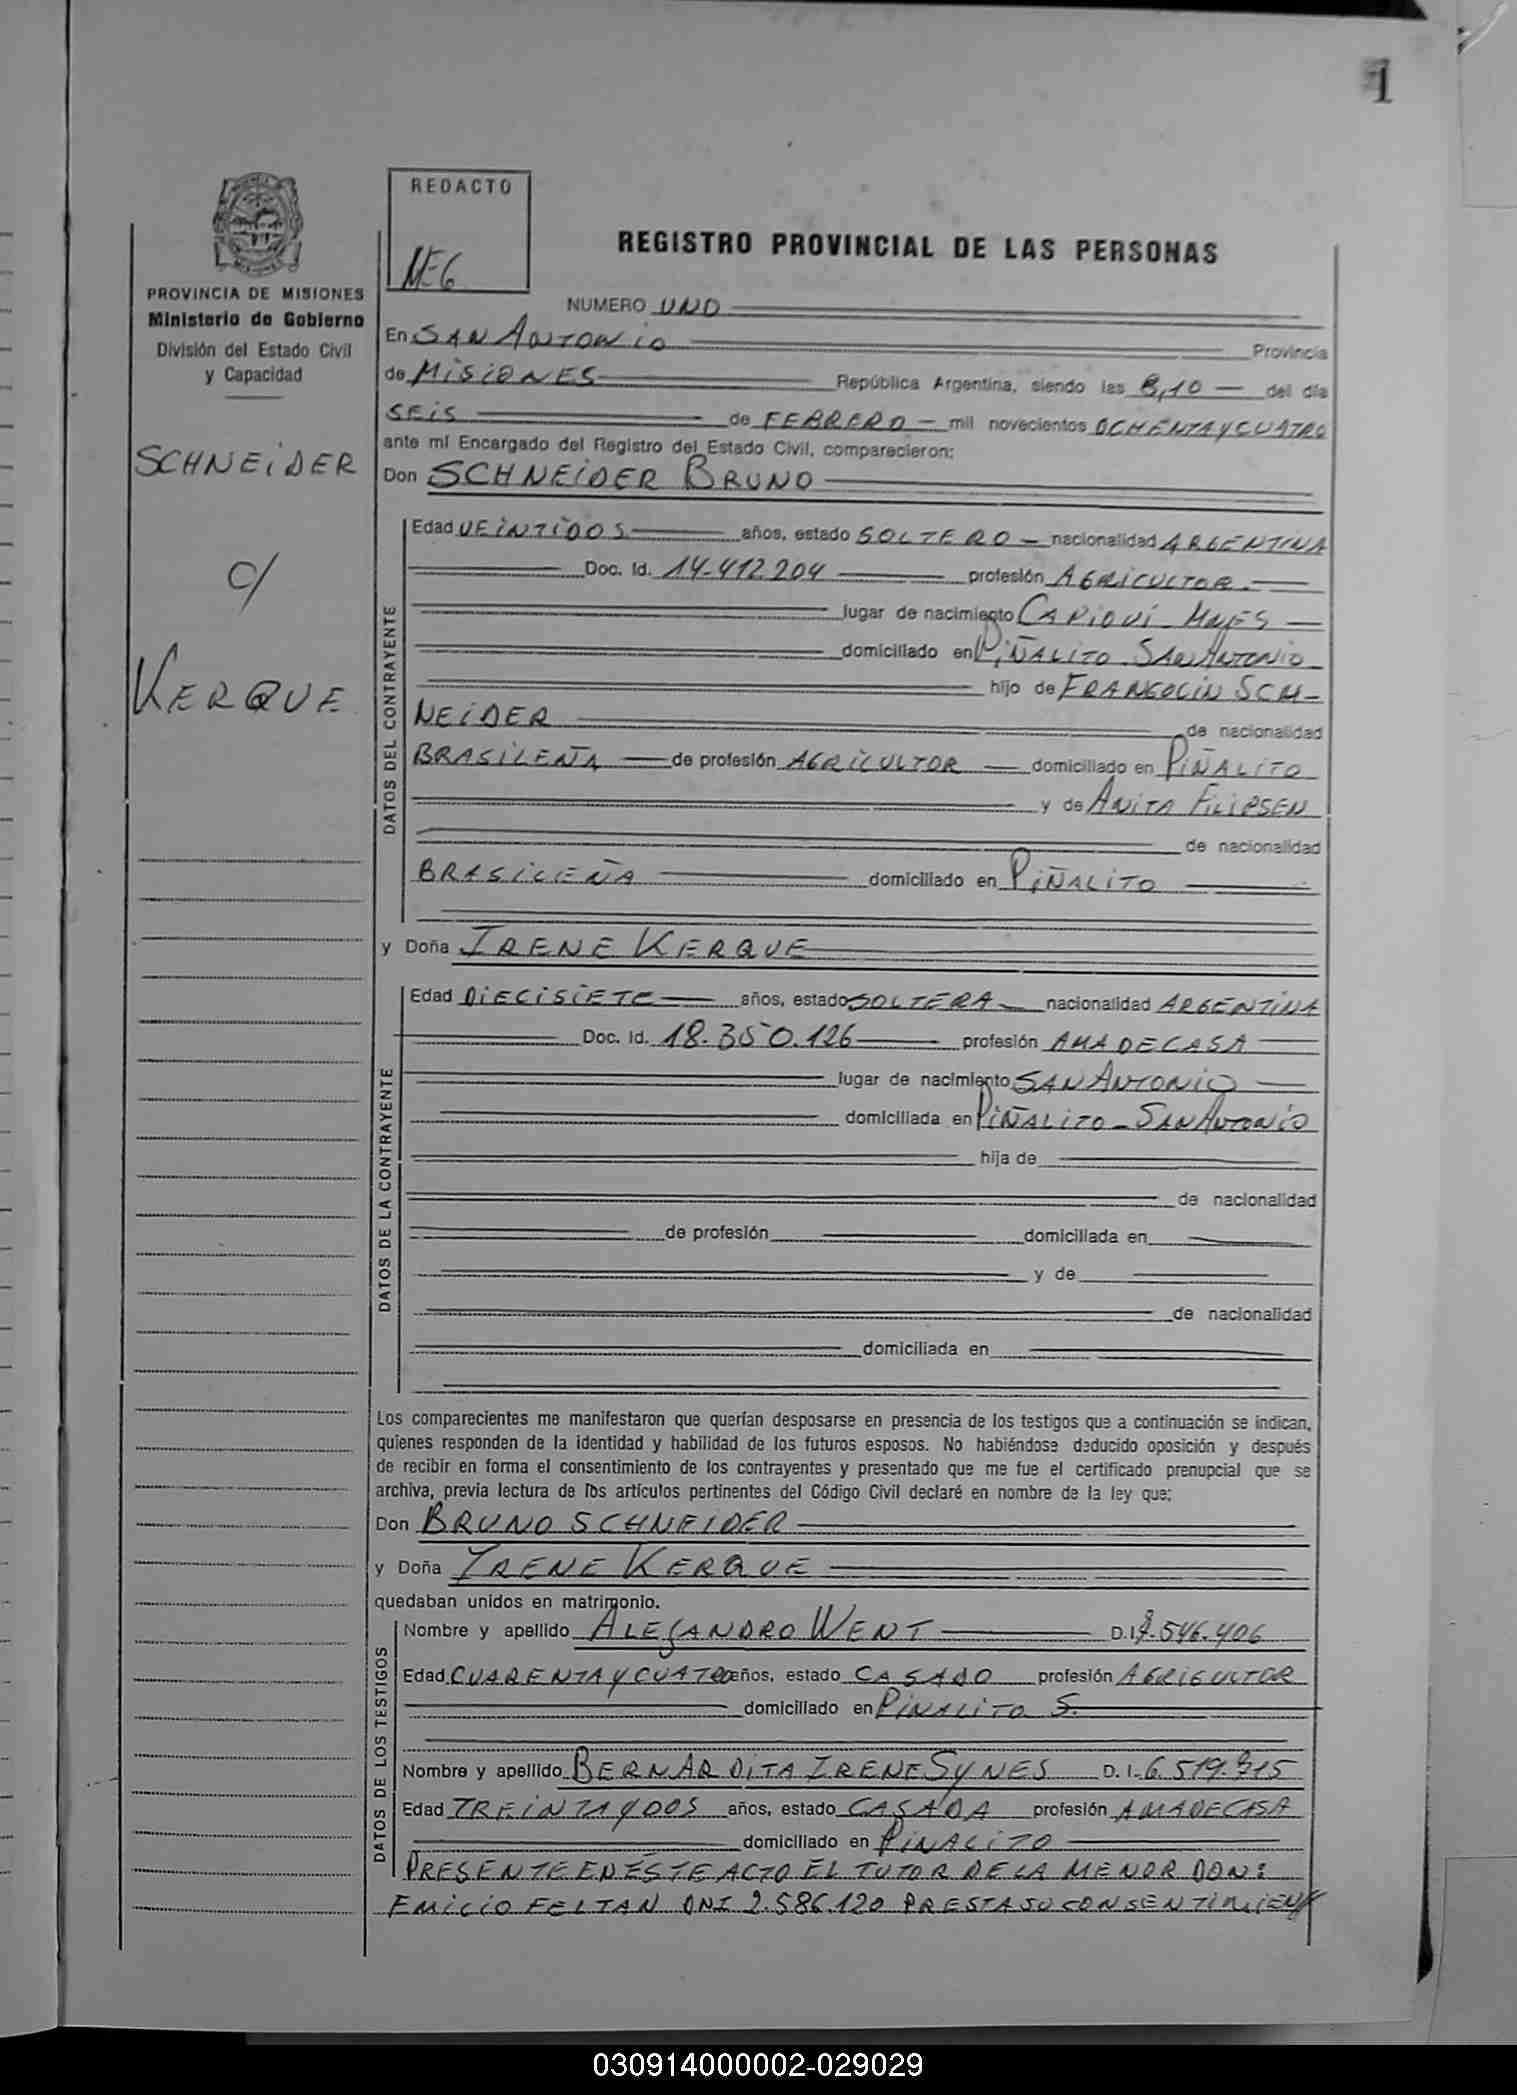 1
REDACTO
REGISTRO PROVINCIAL DE LAS PERSONAS
PROVINCIA DE MISIONES
Ministerio de Gobierno
División del Estado Civil
y Capacidad
SCHNEIDER
c/
KERQUE
NUMERO UNO
En SAN ANTONIO Provincia
de MISIONES República Argentina, siendo las 8,10 del día
SEIS de FEBRERO mil novecientos OCHENTA Y CUATRO
ante mí Encargado del Registro del Estado Civil, comparecieron:
Don SCHNEIDER BRUNO
DATOS DEL CONTRAYENTE
Edad VEINTIDOS años, estado SOLTERO nacionalidad ARGENTINA
Doc. Id. 14.412.204 profesión AGRICULTOR
lugar de nacimiento CAPIOVI - MNES
domiciliado en PIÑALITO - SAN ANTONIO
hijo de FRANGOLIN SCH-
NEIDER de nacionalidad
BRASILEÑA de profesión AGRICULTOR domiciliado en PIÑALITO
y de ANITA FILIPSEN
de nacionalidad
BRASILEÑA domiciliado en PIÑALITO
y Doña IRENE KERQUE
DATOS DE LA CONTRAYENTE
Edad DIECISIETE años, estado SOLTERA nacionalidad ARGENTINA
Doc. Id. 18.350.126 profesión AMA DE CASA
lugar de nacimiento SAN ANTONIO
domiciliada en PIÑALITO - SAN ANTONIO
hija de
de nacionalidad
de profesión domiciliada en
y de
de nacionalidad
domiciliada en
Los comparecientes me manifestaron que querían desposarse en presencia de los testigos que a continuación se indican,
quienes responden de la identidad y habilidad de los futuros esposos. No habiéndose deducido oposición y después
de recibir en forma el consentimiento de los contrayentes y presentado que me fue el certificado prenupcial que se
archiva, previa lectura de los artículos pertinentes del Código Civil declaré en nombre de la ley que:
Don BRUNO SCHNEIDER
y Doña IRENE KERQUE
quedaban unidos en matrimonio.
DATOS DE LOS TESTIGOS
Nombre y apellido ALEJANDRO WENT D.I.
Edad CUARENTA Y CUATRO años, estado CASADO profesión AGRICULTOR
domiciliado en PIÑALITO S.
Nombre y apellido BERNARDITA IRENE SYNES D. I. 6.519.
Edad TREINTA Y DOS años, estado CASADA profesión AMA DE CASA
domiciliado en PIÑALITO
PRESENTE EN ESTE ACTO EL TUTOR DE LA MENOR DON:
EMILIO FELTAN DNI 2.586.120 PRESTA SU CONSENTIMIEN
030914000002-029029